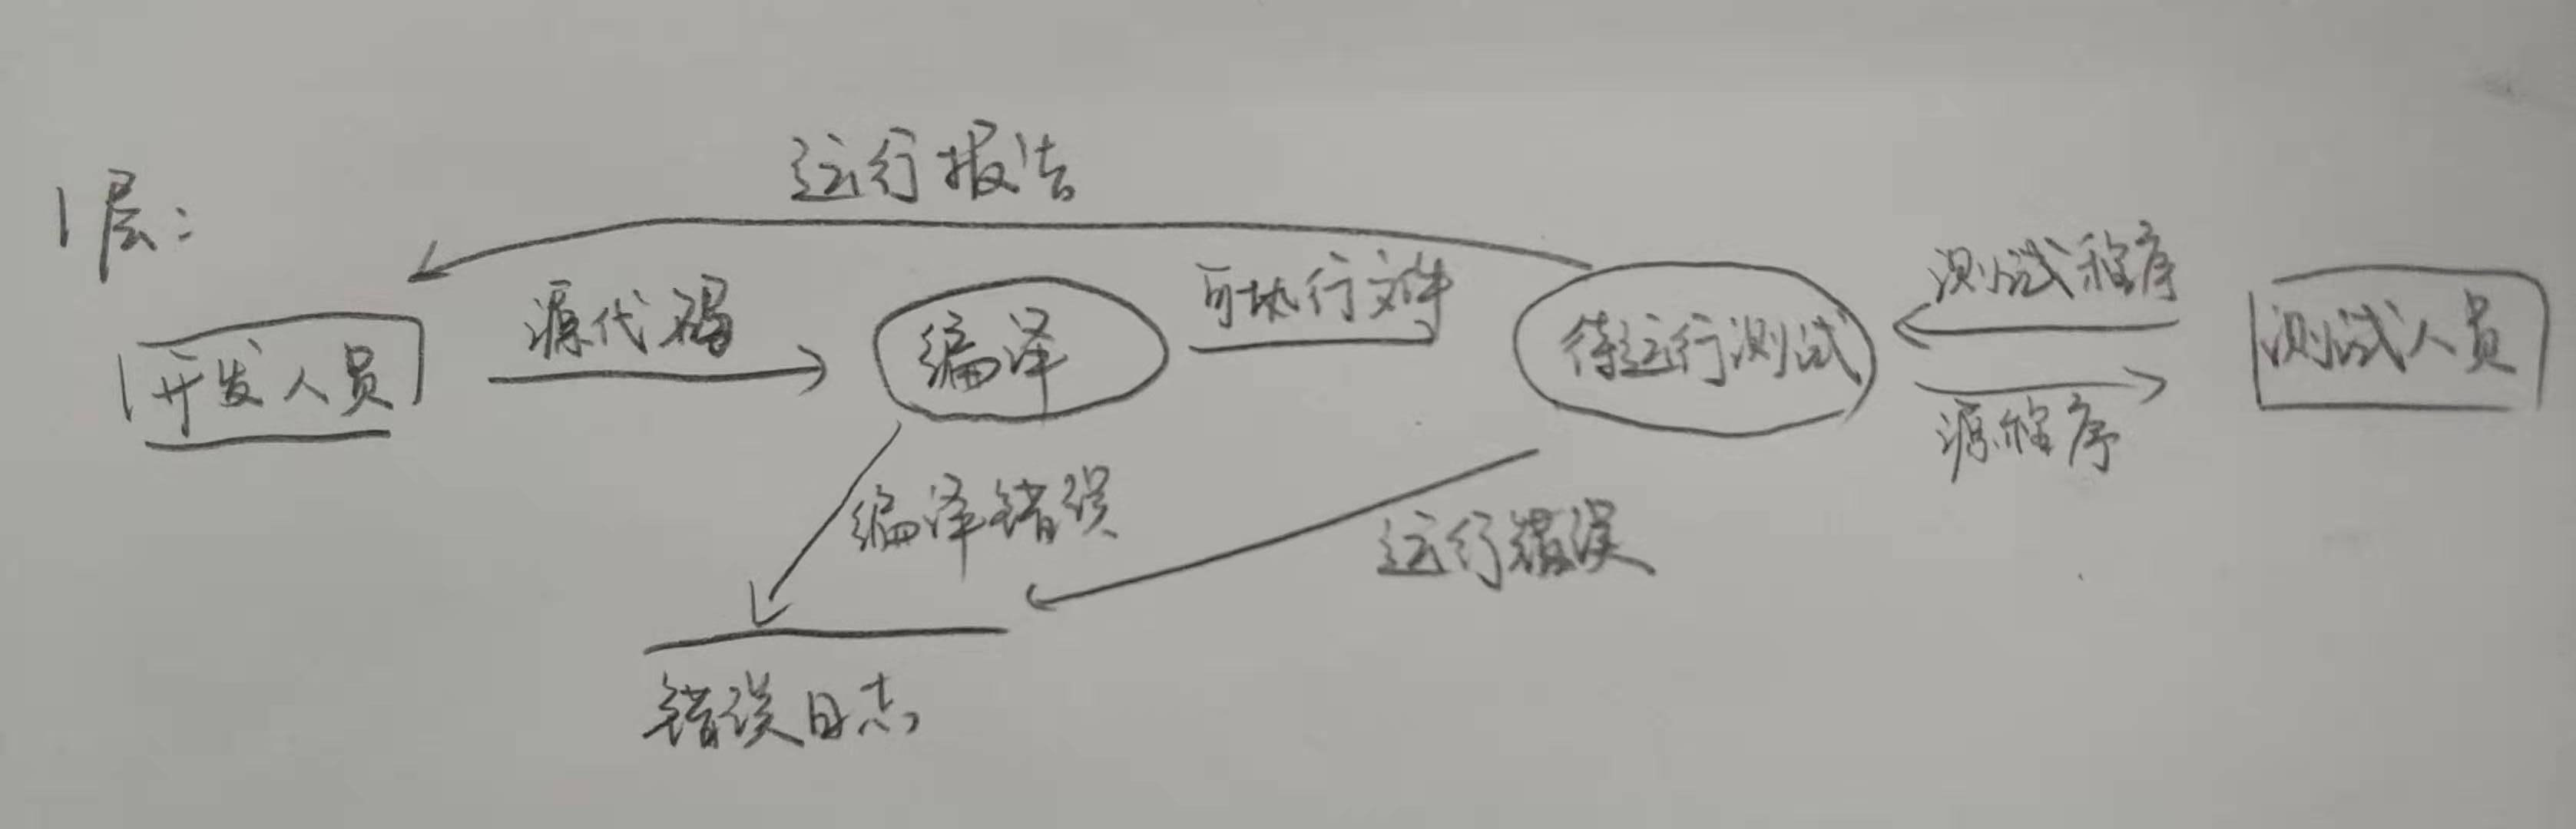 1层:
运行报告
开发人员
源代码
编译
可执行文件
待运行测试
测试程序
源程序
测试人员
编译错误
运行错误
错误日志